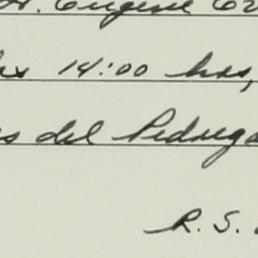 Eugene
14:00 hrs,
del Pedrega
R. S.